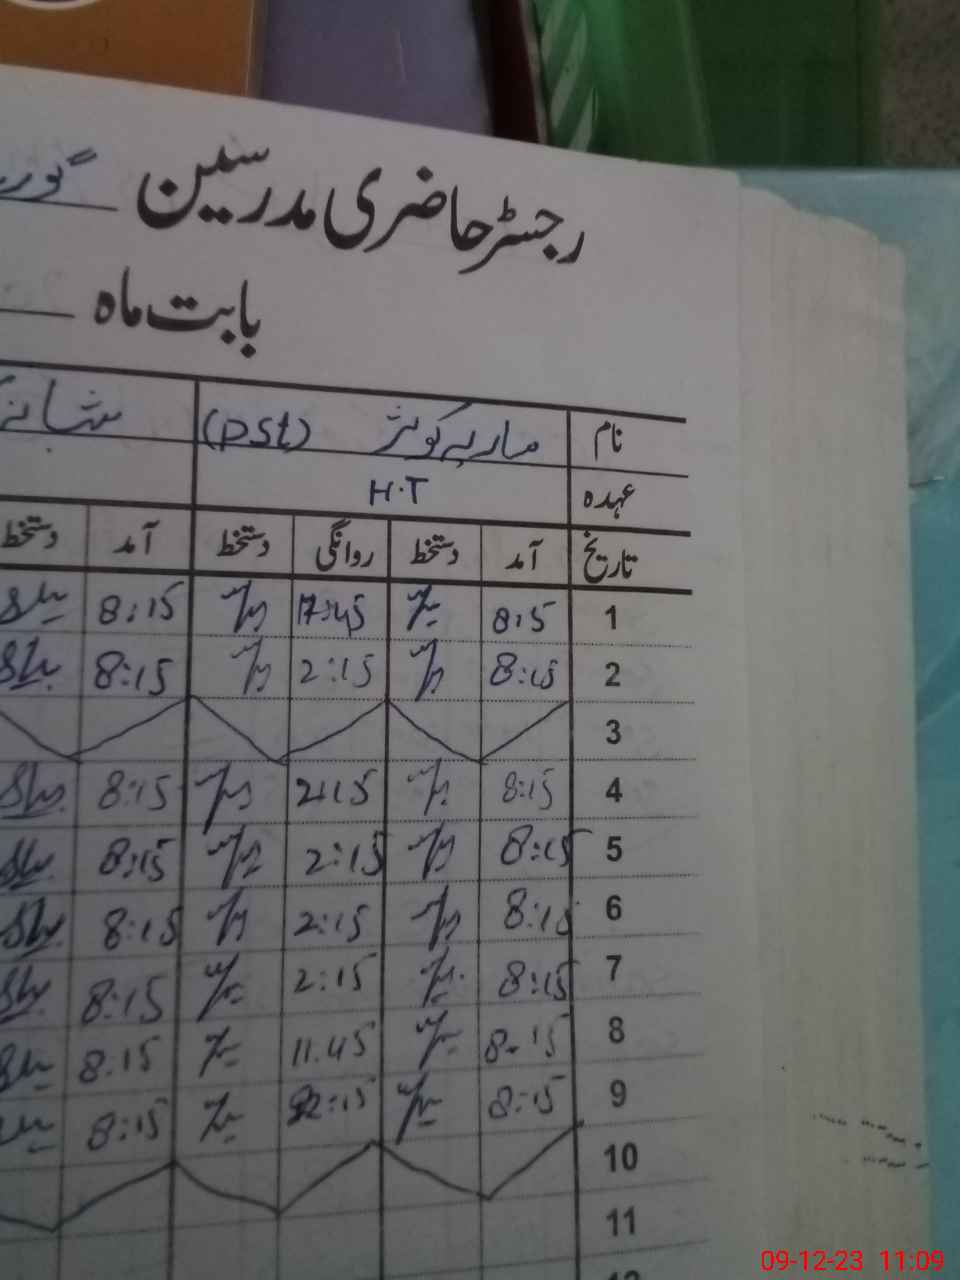 رجسٹر حاضری مدرسین گور
بابت ماہ
نام ماریہ کوثر (PSt) شبانہ
عہدہ H.T
تاریخ آمد دستخط روانگی دستخط آمد دستخط
1 8:15 8:15
2 8:15 2:15 8:15
3
4 8:15 2:15 8:15
5 8:15 2:15 8:15
6 8:15 2:15 8:15
7 8:15 2:15 8:15
8 8.15 11.45 8.15
9 8:15 2:15 8:15
10
11
12
09-12-23 11:09